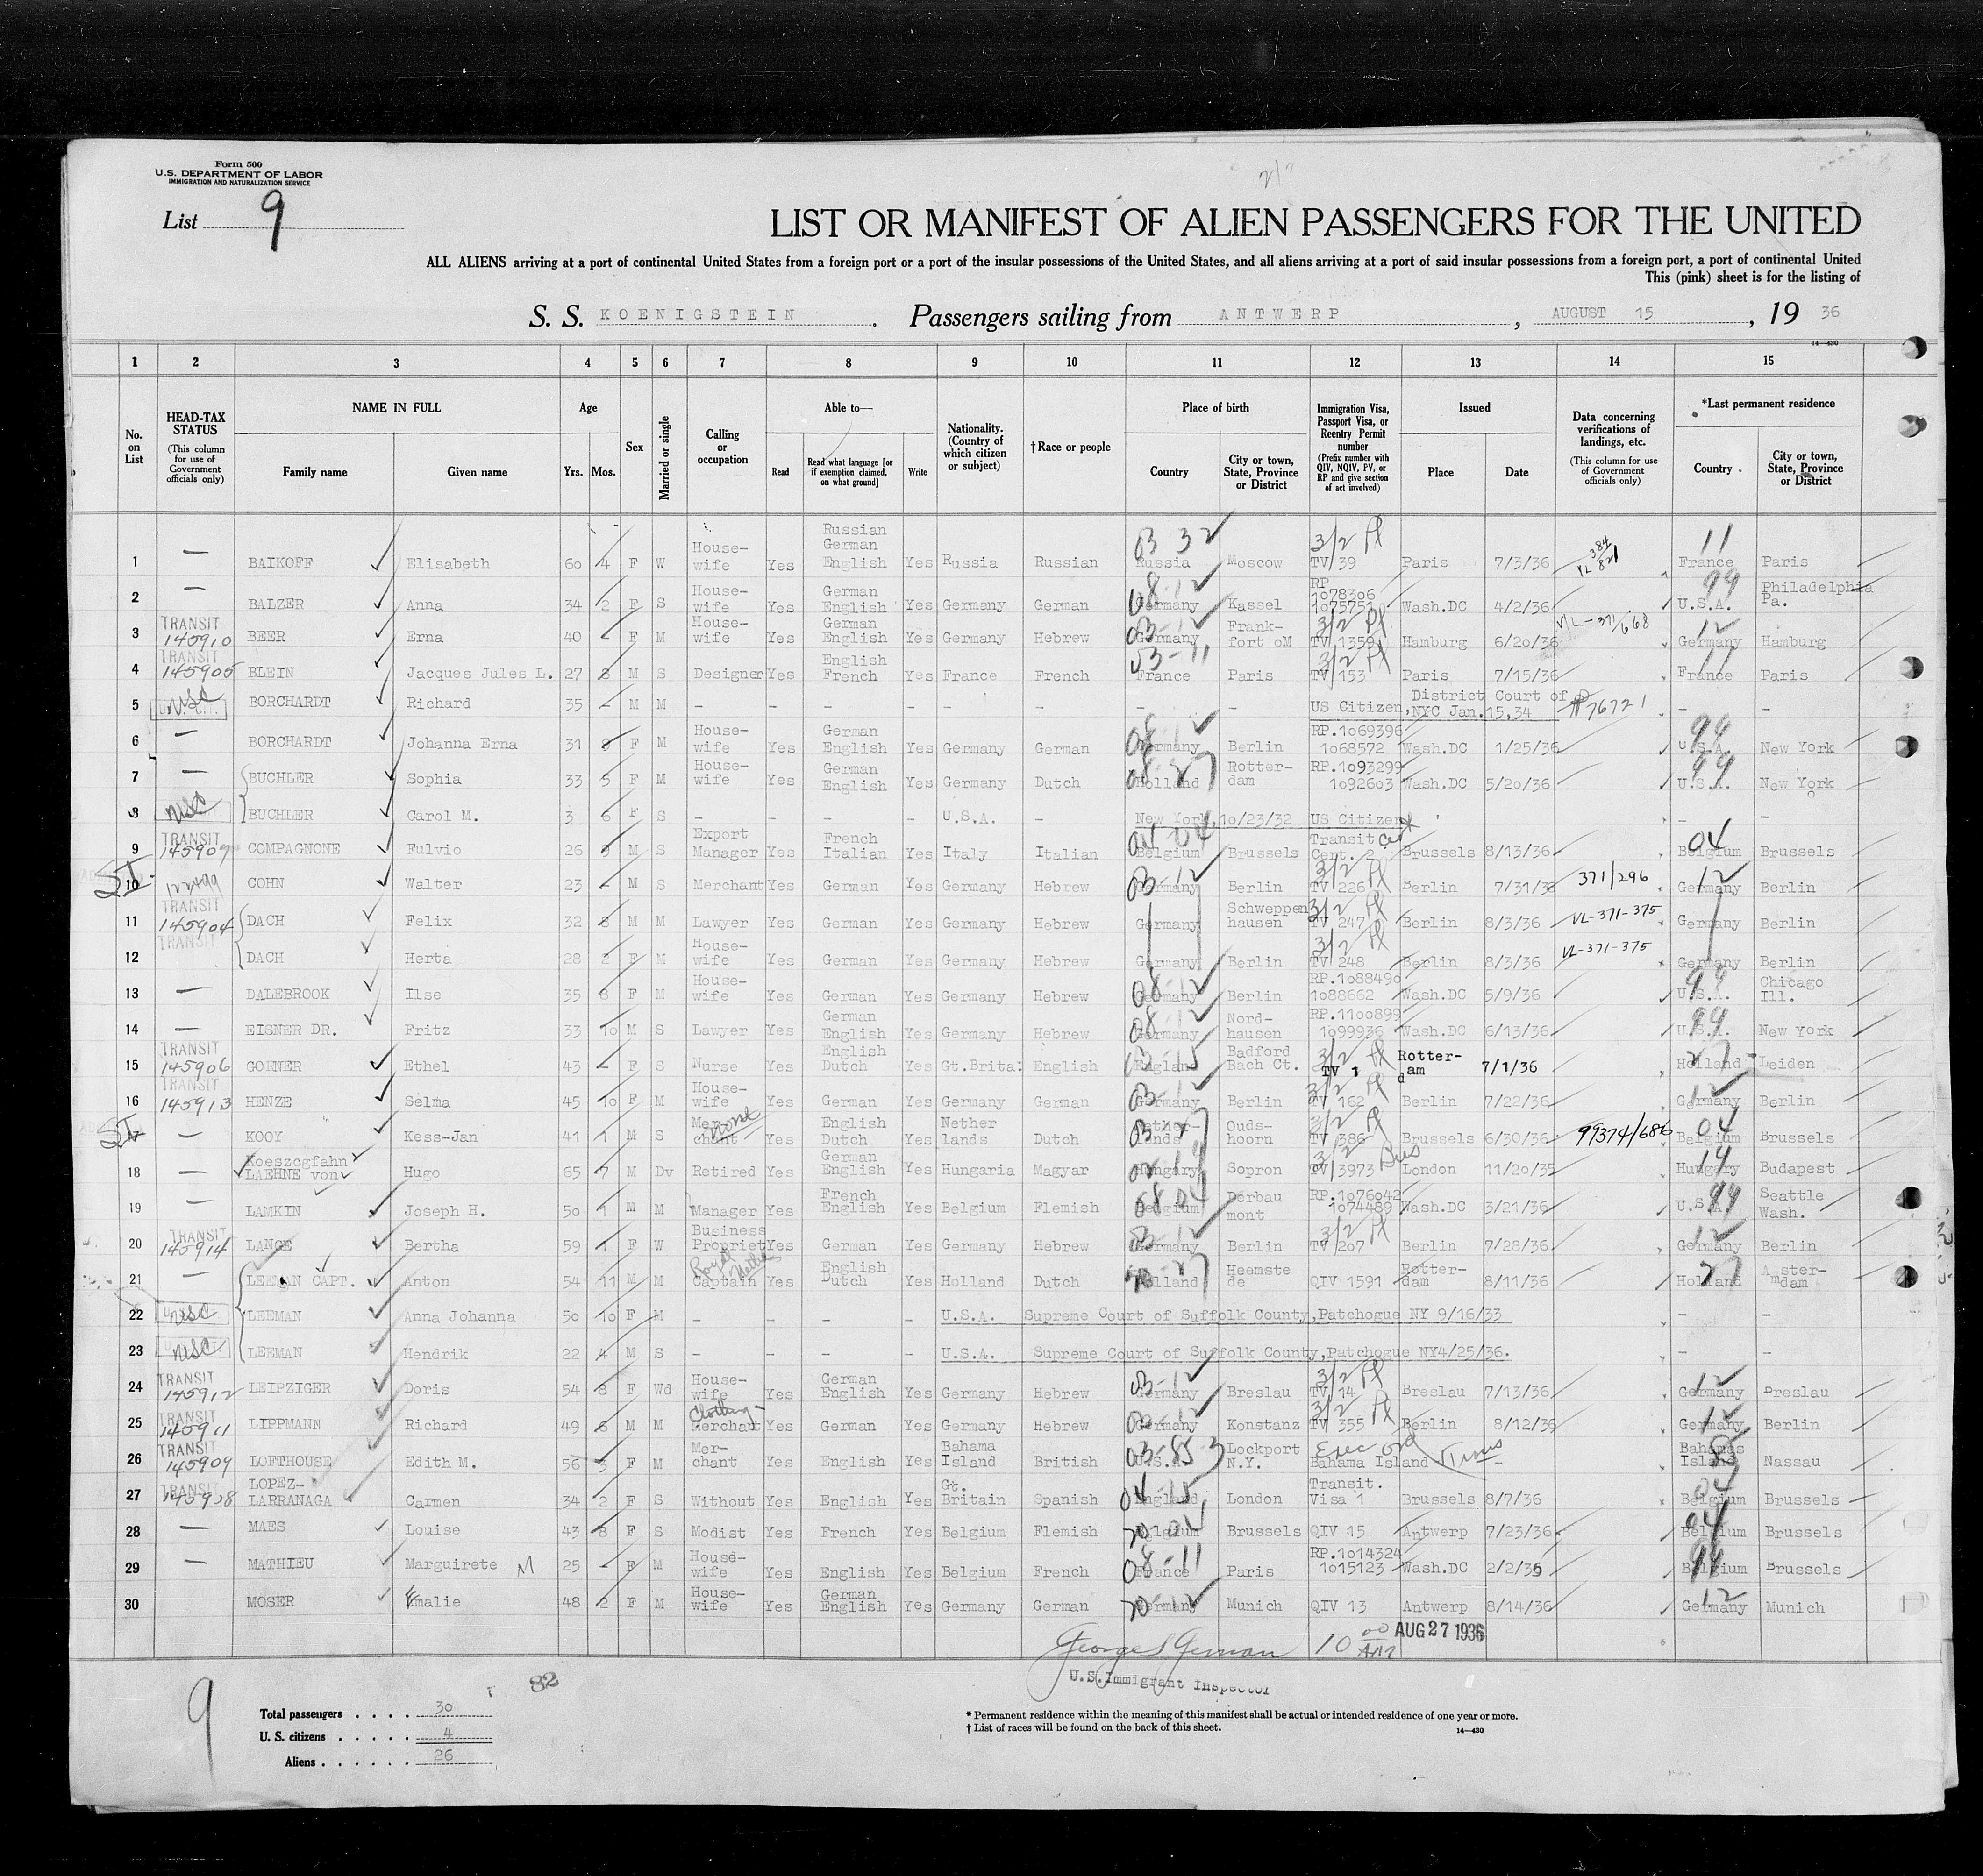 Form 500
U.S. DEPARTMENT OF LABOR
IMMIGRATION AND NATURALIZATION SERVICE
List 9
LIST OR MANIFEST OF ALIEN PASSENGERS FOR THE UNITED
ALL ALIENS arriving at a port of continental United States from a foreign port or a port of the insular possessions of the United States, and all aliens arriving at a port of said insular possessions from a foreign port, a port of continental United
This (pink) sheet is for the listing of
S. S. KOENIGSTEIN. Passengers sailing from ANTWERP, AUGUST 15, 19 36
14—430
1 2 3 4 5 6 7 8 9 10 11 12 13 14 15
No. on List
HEAD-TAX STATUS (This column for use of Government officials only)
NAME IN FULL Family name Given name
Age Yrs. Mos.
Sex
Married or single
Calling or occupation
Able to— Read Read what language [or if exemption claimed, on what ground] Write
Nationality. (Country of which citizen or subject)
† Race or people
Place of birth Country City or town, State, Province or District
Immigration Visa, Passport Visa, or Reentry Permit number (Prefix number with QIV, NQIV, PV, or RP and give section of act involved)
Issued Place Date
Data concerning verifications of landings, etc. (This column for use of Government officials only)
*Last permanent residence Country City or town, State, Province or District
1 — BAIKOFF Elisabeth 60 4 F W House-wife Yes Russian German English Yes Russia Russian Russia Moscow 3/2 Pl TV 39 Paris 7/3/36 11 France Paris
2 — BALZER Anna 34 2 F S House-wife Yes German English Yes Germany German 08-12 Germany Kassel RP 1078306 1075751 Wash.DC 4/2/36 99 U.S.A. Philadelphia Pa.
3 TRANSIT 145910 BEER Erna 40 - F M House-wife Yes German English Yes Germany Hebrew 03-12 Germany Frank-fort oM 3/2 Pl TV 1359 Hamburg 6/20/36 VL-371/668 12 Germany Hamburg
4 TRANSIT 145905 BLEIN Jacques Jules L. 27 8 M S Designer Yes English French Yes France French 03-11 France Paris 3/2 Pl TV 153 Paris 7/15/36 11 France Paris
5 USC BORCHARDT Richard 35 - M M - - - - - - - - US Citizen, District Court of NYC Jan.15,34 #76721 - -
6 — BORCHARDT Johanna Erna 31 8 F M House-wife Yes German English Yes Germany German 08-12 Germany Berlin RP.1069396 1068572 Wash.DC 1/25/36 99 U.S.A. New York
7 — BUCHLER Sophia 33 5 F M House-wife Yes German English Yes Germany Dutch 08-27 Holland Rotter-dam RP.1093299 1092603 Wash.DC 5/20/36 99 U.S.A. New York
8 USC BUCHLER Carol M. 3 6 F S - - - - U.S.A. - New York, 10/23/32 US Citizen - -
9 TRANSIT 145907 COMPAGNONE Fulvio 26 9 M S Export Manager Yes French Italian Yes Italy Italian 04 04 Belgium Brussels Transit Cert. 2 Brussels 8/13/36 04 Belgium Brussels
10 SI 122499 COHN Walter 23 - M S Merchant Yes German Yes Germany Hebrew 03-12 Germany Berlin 3/2 Pl TV 226 Berlin 7/31/3 371/296 12 Germany Berlin
11 TRANSIT 145904 DACH Felix 32 8 M M Lawyer Yes German Yes Germany Hebrew Germany Schweppen hausen 3/2 Pl TV 247 Berlin 8/3/36 VL-371-375 Germany Berlin
12 TRANSIT DACH Herta 28 2 F M House-wife Yes German Yes Germany Hebrew Germany Berlin 3/2 Pl TV 248 Berlin 8/3/36 VL-371-375 Germany Berlin
13 — DALEBROOK Ilse 35 8 F M House-wife Yes German Yes Germany Hebrew 08-12 Germany Berlin RP.1088490 1088662 Wash.DC 5/9/36 99 U.S.A. Chicago Ill.
14 — EISNER DR. Fritz 33 10 M S Lawyer Yes German English Yes Germany Hebrew 08-12 Germany Nord-hausen RP.1100899 1099936 Wash.DC 6/13/36 99 U.S.A. New York
15 TRANSIT 145906 GORNER Ethel 43 - F S Nurse Yes English Dutch Yes Gt.Brita: English 03-15 England Badford Bach Ct. 3/2 Pl TV 1 Rotter-dam 7/1/36 27 Holland Leiden
16 TRANSIT 145913 HENZE Selma 45 10 F M House-wife Yes German Yes Germany German 03-12 Germany Berlin 3/2 Pl TV 162 Berlin 7/22/36 12 Germany Berlin
17 SI — KOOY Kess-Jan 41 1 M S Mer-chant none Yes English Dutch Yes Nether lands Dutch 03 27 Nether-lands Ouds-hoorn 3/2 Pl TV 386 Brussels 6/30/36 99374/686 04 Belgium Brussels
18 — Koeszcgfahn LAEHNE von Hugo 65 7 M Dv Retired Yes German English Yes Hungaria Magyar Hungary Sopron 3/2 TV 3973 London 11/20/35 14 Hungary Budapest
19 — LAMKIN Joseph H. 50 1 M M Manager Yes French English Yes Belgium Flemish 08 04 Belgium Dorbau mont RP.1076042 1074489 Wash.DC 3/21/36 99 U.S.A. Seattle Wash.
20 TRANSIT 145914 LANGE Bertha 59 1 F W Business Propriet Yes German Yes Germany Hebrew 03-12 Germany Berlin 3/2 Pl TV 207 Berlin 7/28/36 12 Germany Berlin
21 — LEEMAN CAPT. Anton 54 11 M M Captain Yes English Dutch Yes Holland Dutch 70-27 Holland Heemste de QIV 1591 Rotter-dam 8/11/36 27 Holland Amster-dam
22 USC LEEMAN Anna Johanna 50 10 F M - - - - U.S.A. Supreme Court of Suffolk County,Patchogue NY 9/16/33 - -
23 USC LEEMAN Hendrik 22 4 M S - - - - U.S.A. Supreme Court of Suffolk County,Patchogue NY4/25/36. - -
24 TRANSIT 145912 LEIPZIGER Doris 54 8 F Wd House-wife Yes German English Yes Germany Hebrew 03-12 Germany Breslau 3/2 Pl TV 14 Breslau 7/13/36 12 Germany Breslau
25 TRANSIT 145911 LIPPMANN Richard 49 6 M M Clothing- Merchant Yes German Yes Germany Hebrew 03-12 Germany Konstanz 3/2 Pl TV 355 Berlin 8/12/36 12 Germany Berlin
26 TRANSIT 145909 LOFTHOUSE Edith M. 56 3 F M Mer-chant Yes English Yes Bahama Island British 03-85-3 U.S.A. Lockport N.Y. Exec ord Bahama Island - Bahamas Island Nassau
27 TRANSIT 145908 LOPEZ-LARRANAGA Carmen 34 2 F S Without Yes English Yes Gt. Britain Spanish 04-15 England London Transit. Visa 1 Brussels 8/7/36 04 Belgium Brussels
28 — MAES Louise 43 8 F S Modist Yes French Yes Belgium Flemish 70 04 Belgium Brussels QIV 15 Antwerp 7/23/36 04 Belgium Brussels
29 — MATHIEU Marguirete M 25 - F M House-wife Yes English Yes Belgium French 08-11 France Paris RP.1014324 1015123 Wash.DC 2/2/36 99 Belgium Brussels
30 MOSER Emalie 48 2 F M House-wife Yes German English Yes Germany German 70-12 Germany Munich QIV 13 Antwerp 8/14/36 12 Germany Munich
10 00 AM AUG 27 1936
U.S. Immigrant Inspector
9
82
Total passengers . . . . 30
U. S. citizens . . . . . 4
Aliens . . . . . . 26
* Permanent residence within the meaning of this manifest shall be actual or intended residence of one year or more.
† List of races will be found on the back of this sheet.
14—430